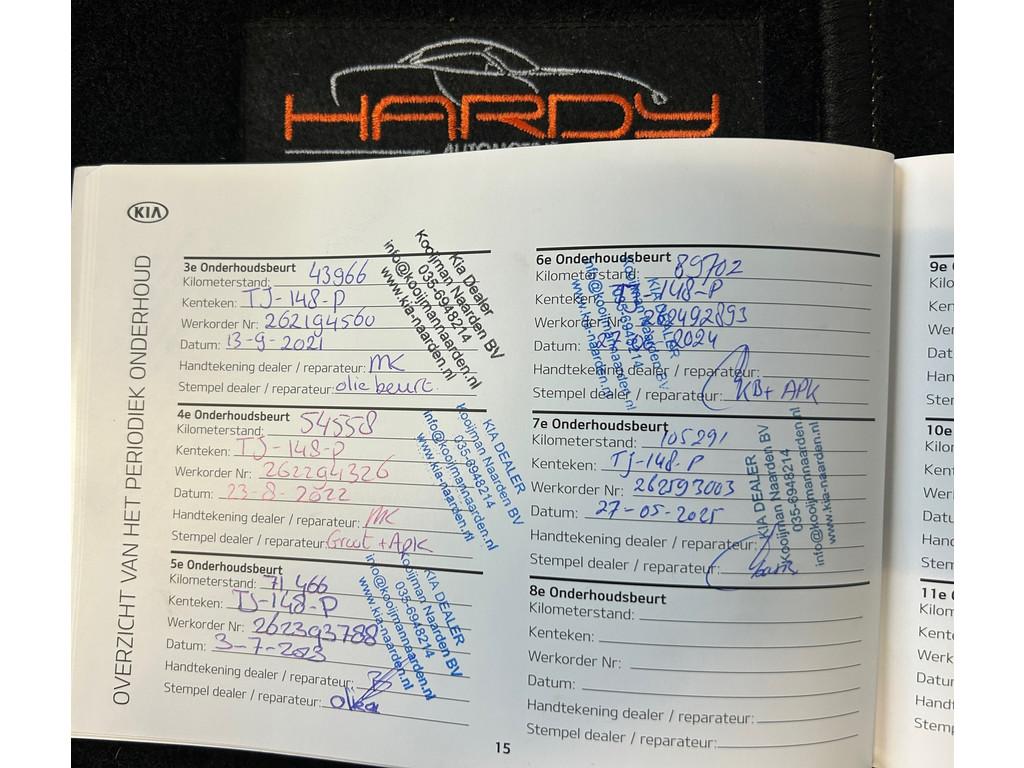 HARDY
KIA
OVERZICHT VAN HET PERIODIEK ONDERHOUD
3e Onderhoudsbeurt
Kilometerstand: 43966
Kenteken: TJ-148-P
Werkorder Nr: 262194560
Datum: 13-9-2021
Handtekening dealer / reparateur: MK
Stempel dealer / reparateur: olie beurt.
Kia Dealer
Kooijman Naarden BV
035-6948214
info@kooijmannaarden.nl
www.kia-naarden.nl
4e Onderhoudsbeurt
Kilometerstand:
Kenteken: TJ-148-P
Werkorder Nr: 262294326
Datum: 23-8-2022
Handtekening dealer / reparateur: MK
Stempel dealer / reparateur: Groot + APK
KIA DEALER
Kooijman Naarden BV
035-6948214
info@kooijmannaarden.nl
www.kia-naarden.nl
5e Onderhoudsbeurt
Kilometerstand: 71466
Kenteken: TJ-148-P
Werkorder Nr: 262393788
Datum: 3-7-2023
Handtekening dealer / reparateur:
Stempel dealer / reparateur:
KIA DEALER
Kooijman Naarden BV
035-6948214
info@kooijmannaarden.nl
www.kia-naarden.nl
6e Onderhoudsbeurt
Kilometerstand: 89702
Kenteken: TJ-148-P
Werkorder Nr: 262492893
Datum: 2024
Handtekening dealer / reparateur:
Stempel dealer / reparateur: KB + APK
KIA DEALER
Kooijman Naarden BV
035-6948214
info@kooijmannaarden.nl
www.kia-naarden.nl
7e Onderhoudsbeurt
Kilometerstand: 105291
Kenteken: TJ-148-P
Werkorder Nr: 262593003
Datum: 27-05-2025
Handtekening dealer / reparateur:
Stempel dealer / reparateur:
KIA DEALER
Kooijman Naarden BV
035-6948214
info@kooijmannaarden.nl
www.kia-naarden.nl
8e Onderhoudsbeurt
Kilometerstand:
Kenteken:
Werkorder Nr:
Datum:
Handtekening dealer / reparateur:
Stempel dealer / reparateur:
15
9e
10e
11e